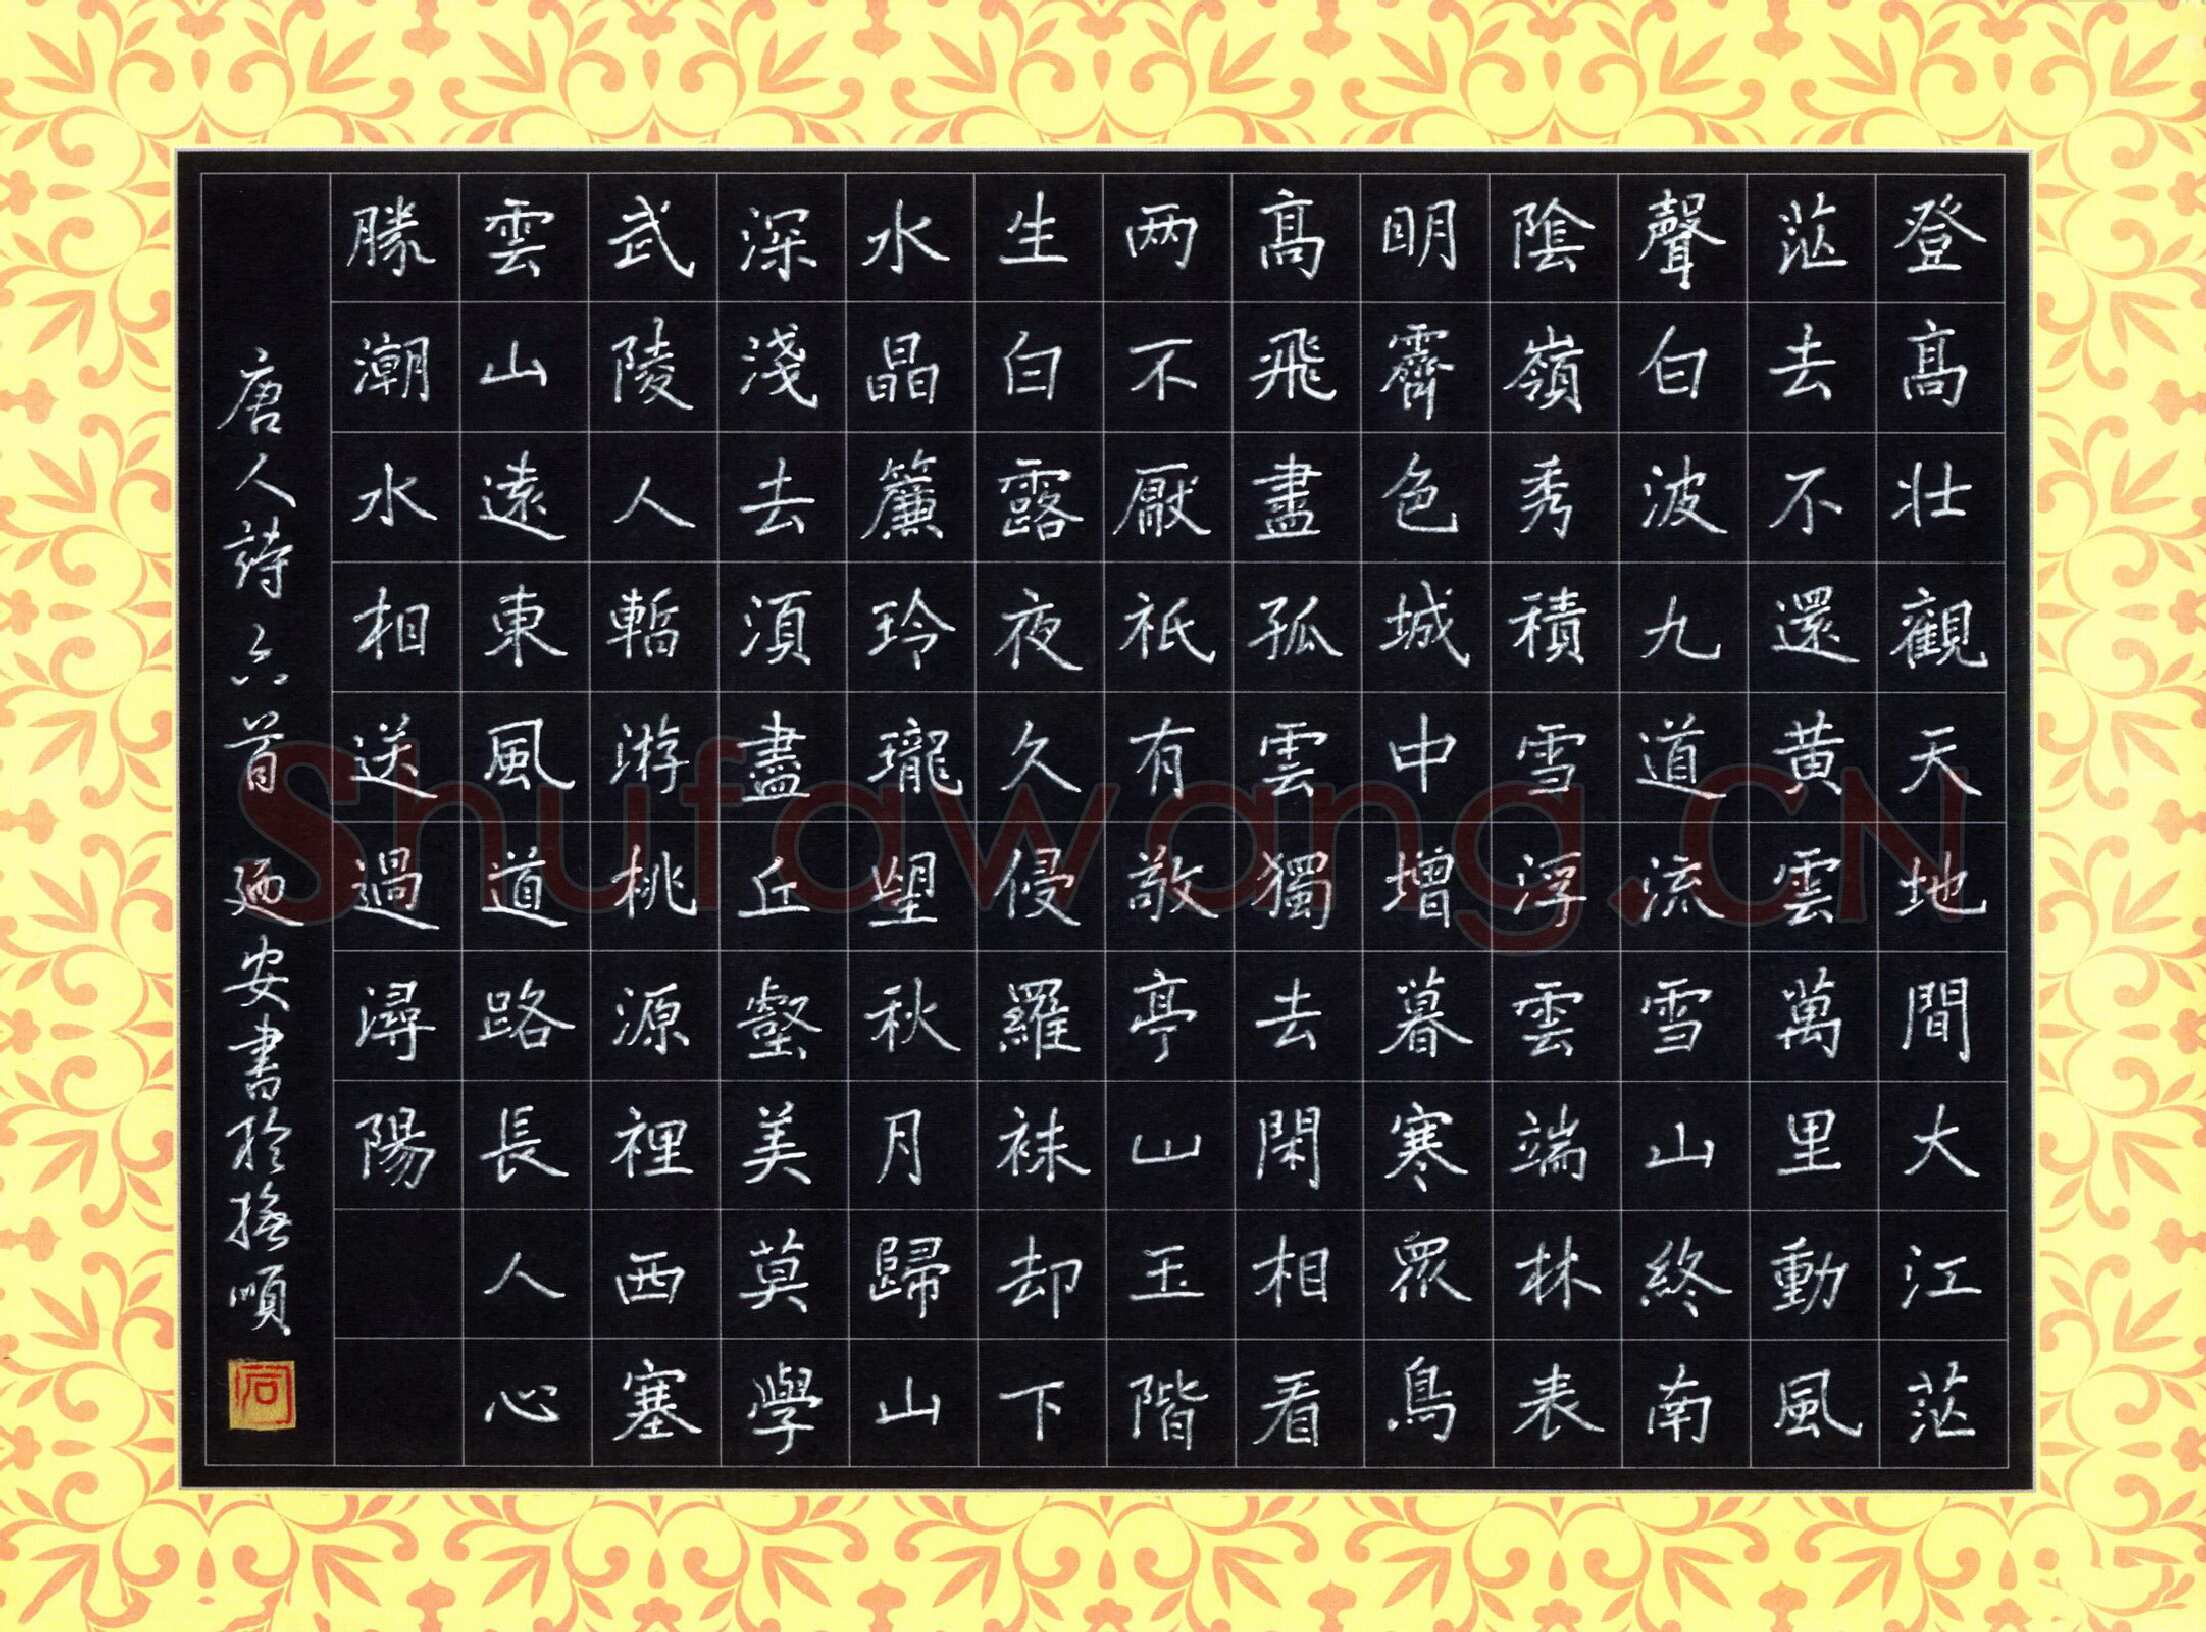 登高壯觀天地間大江茫
茫去不還黄雲萬里動風
聲白波九道流雪山終南
陰嶺秀積雪浮雲端林表
明霽色城中增暮寒眾鳥
高飛盡孤雲獨去閑相看
两不厭祇有敬亭山玉階
生白露夜久侵羅袜却下
水晶簾玲瓏望秋月歸山
深淺去須盡丘壑美莫學
武陵人暫游桃源裡西塞
雲山遠東風道路長人心
勝潮水相送過潯陽
唐人詩六首 廼安書於撫順
Shufawang.CN